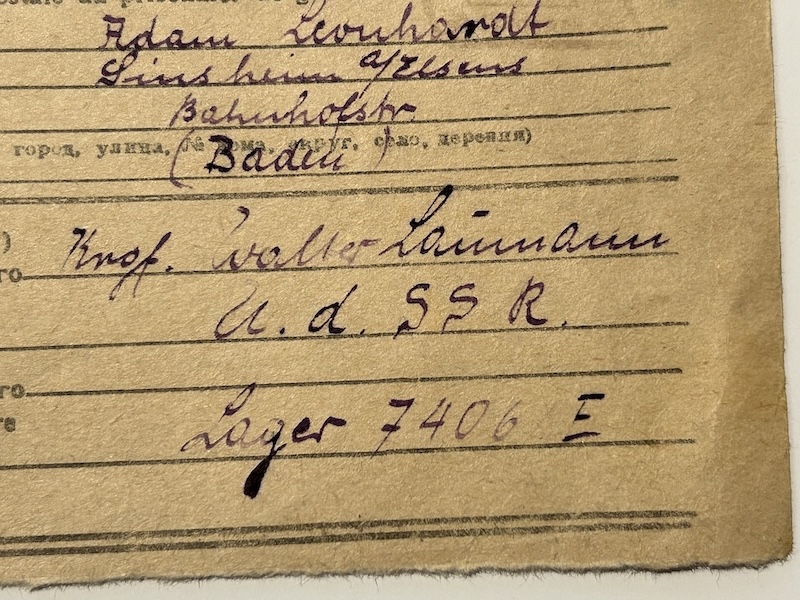 Adam Leonhardt
Sinsheim a/Elsens
Bahnhofstr.
город, улица, № дома, округ, село, деревня)
(Baden)
)
го Krgf. Walter Laumann
U. d. S S R.
го
те
Lager 7406 E